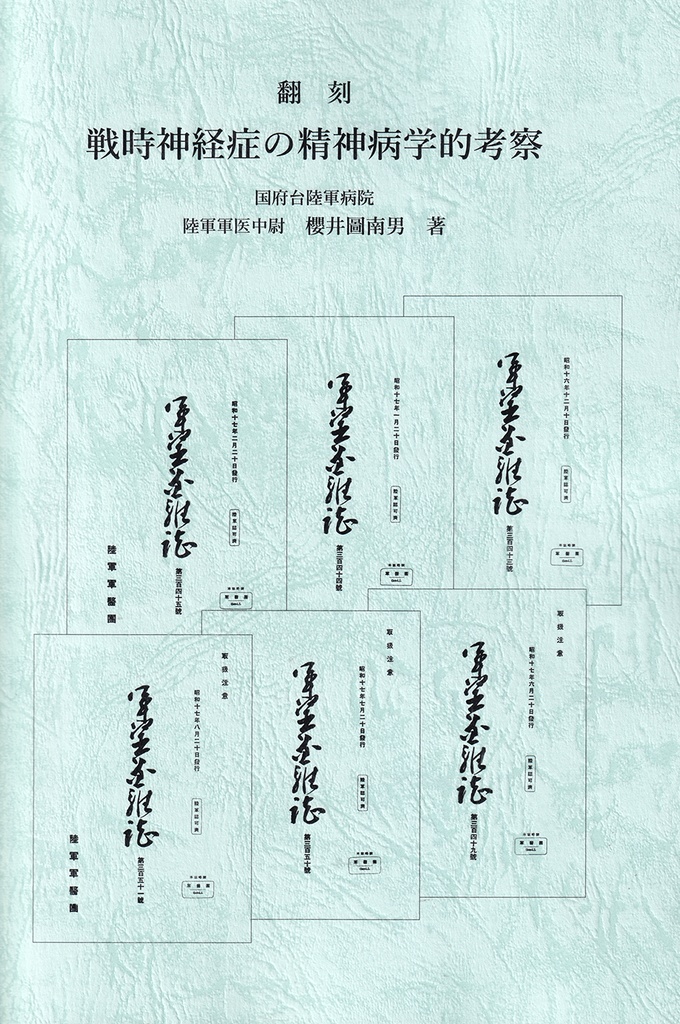 翻 刻
戦時神経症の精神病学的考察
国府台陸軍病院
陸軍軍医中尉 櫻井圖南男 著
昭和十六年十二月十日發行
陸軍認可済
軍醫團雜誌
第三百四十三號
昭和十七年一月二十日發行
陸軍認可済
軍醫團雜誌
第三百四十四號
昭和十七年二月二十日發行
陸軍認可済
軍醫團雜誌
第三百四十五號
陸軍軍醫團
取扱注意
昭和十七年六月二十日發行
陸軍認可済
軍醫團雜誌
第三百四十九號
取扱注意
昭和十七年七月二十日發行
陸軍認可済
軍醫團雜誌
第三百五十號
取扱注意
昭和十七年八月二十日發行
陸軍認可済
軍醫團雜誌
第三百五十一號
陸軍軍醫團